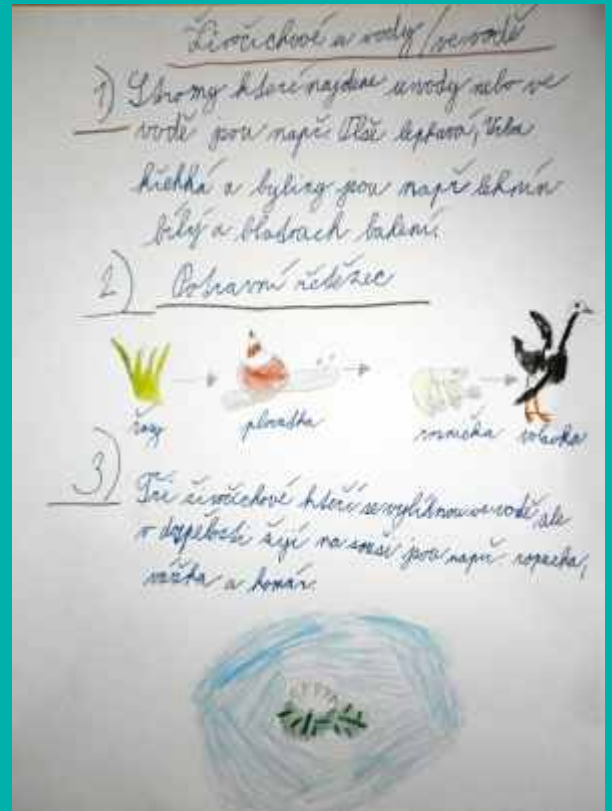 Živočichové u vody/ve vodě
1) Stromy které najdeme u vody nebo ve
vodě jsou např. Olše lepkavá, Vrba
křehká a byliny jsou např leknín
bílý a blatouch bahení.
2) Potravní řetězec
řasy plovatka volavka
3) Tři živočichové kteří se vylíhnou ve vodě, ale
v dospělosti žijí na souši jsou např ropucha,
vážka a komár.